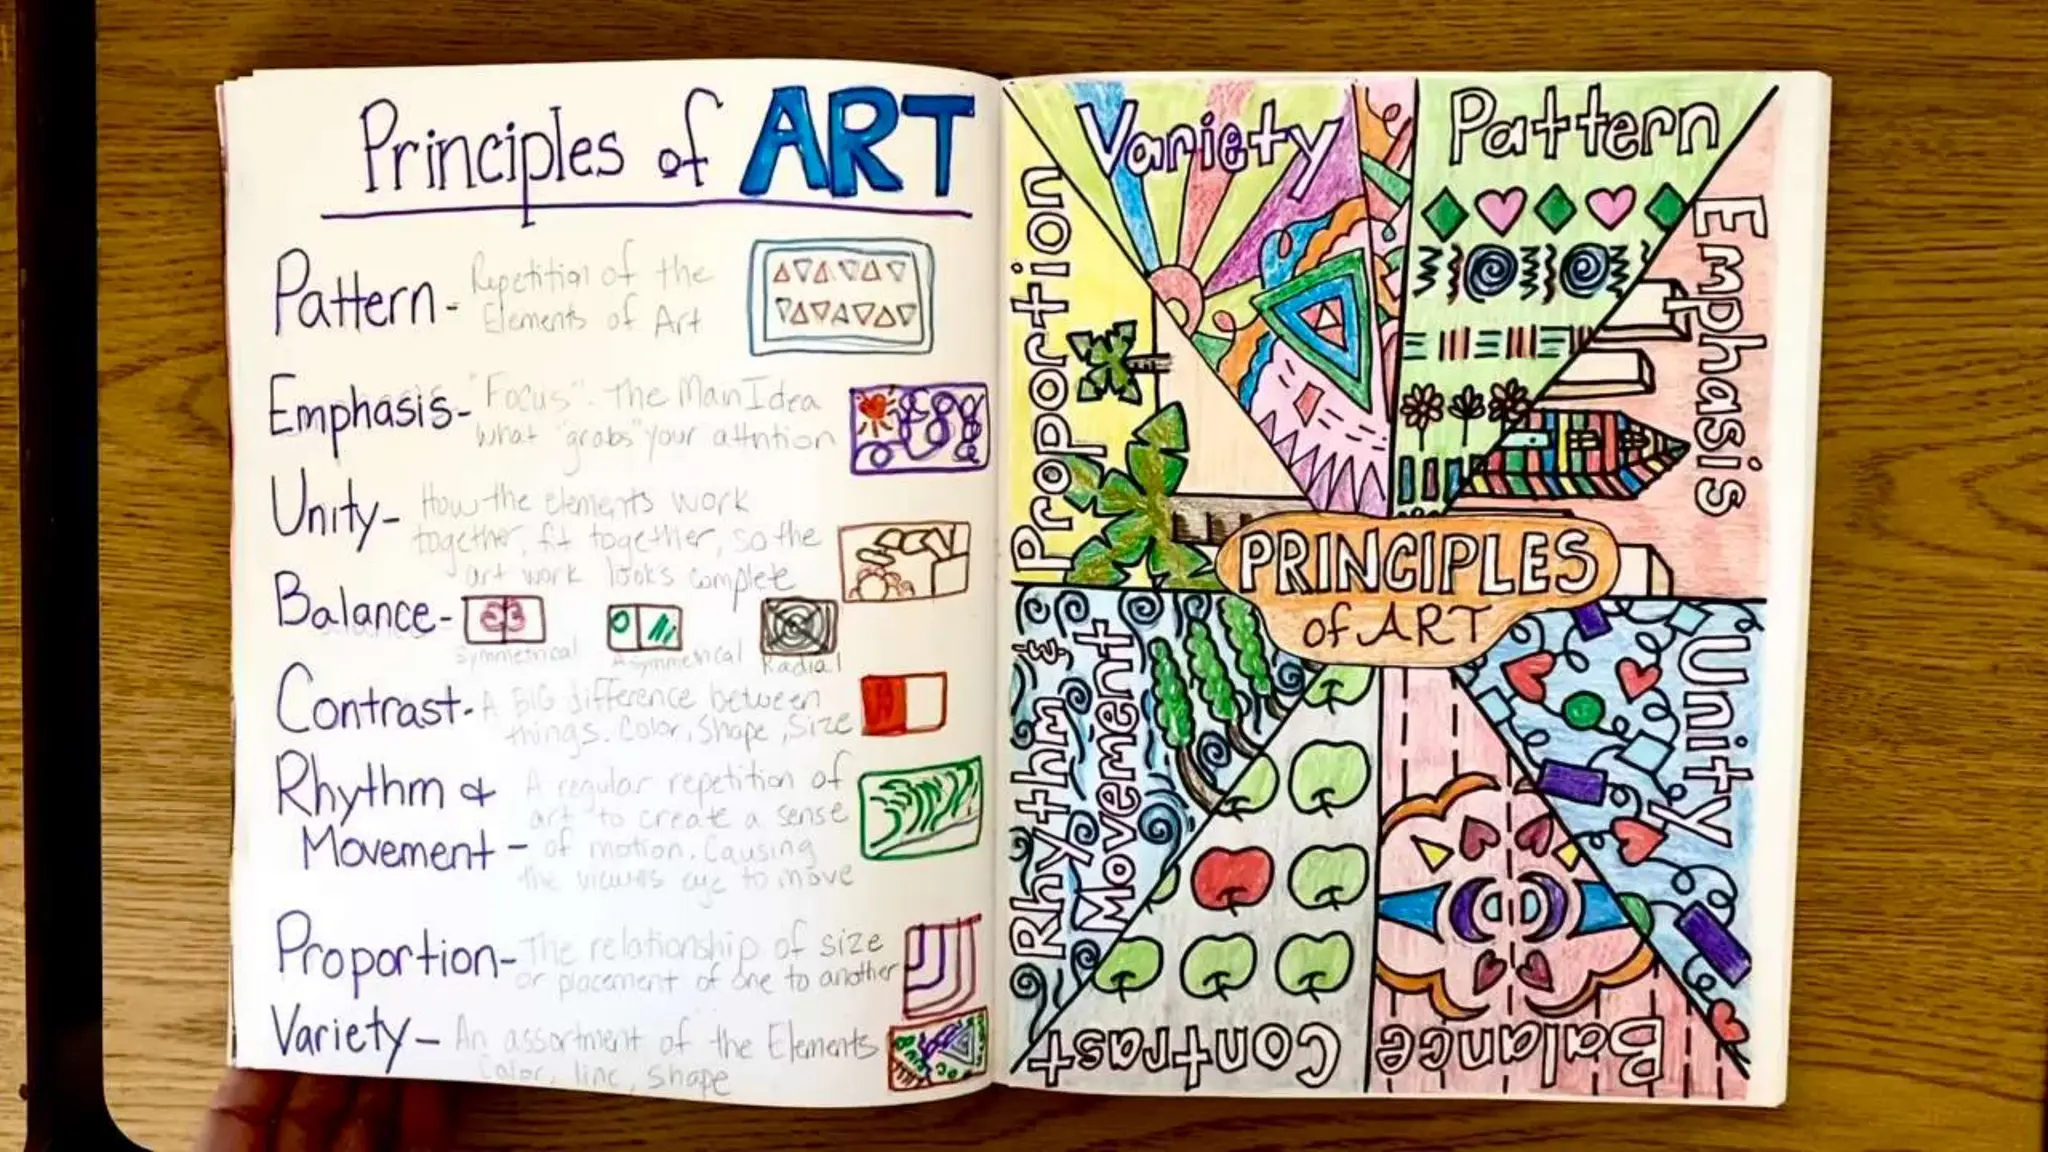 Principles of ART
Pattern - Repetition of the
Elements of Art
Emphasis - "Focus" - The Main Idea
what "grabs" your attntion
Unity - How the elements work
together, fit together, so the
art work looks complete
Balance -
Symmetrical Asymmetrical Radial
Contrast - A BIG difference between
things. Color, Shape, Size
Rhythm & A regular repetition of
art to create a sense
Movement - of motion. Causing
the viewers eye to move
Proportion - The relationship of size
or placement of one to another
Variety - An assortment of the Elements
Color, line, shape
Variety
Pattern
Proportion
Emphasis
PRINCIPLES
of ART
Rhythm &
Movement
Unity
Contrast
Balance